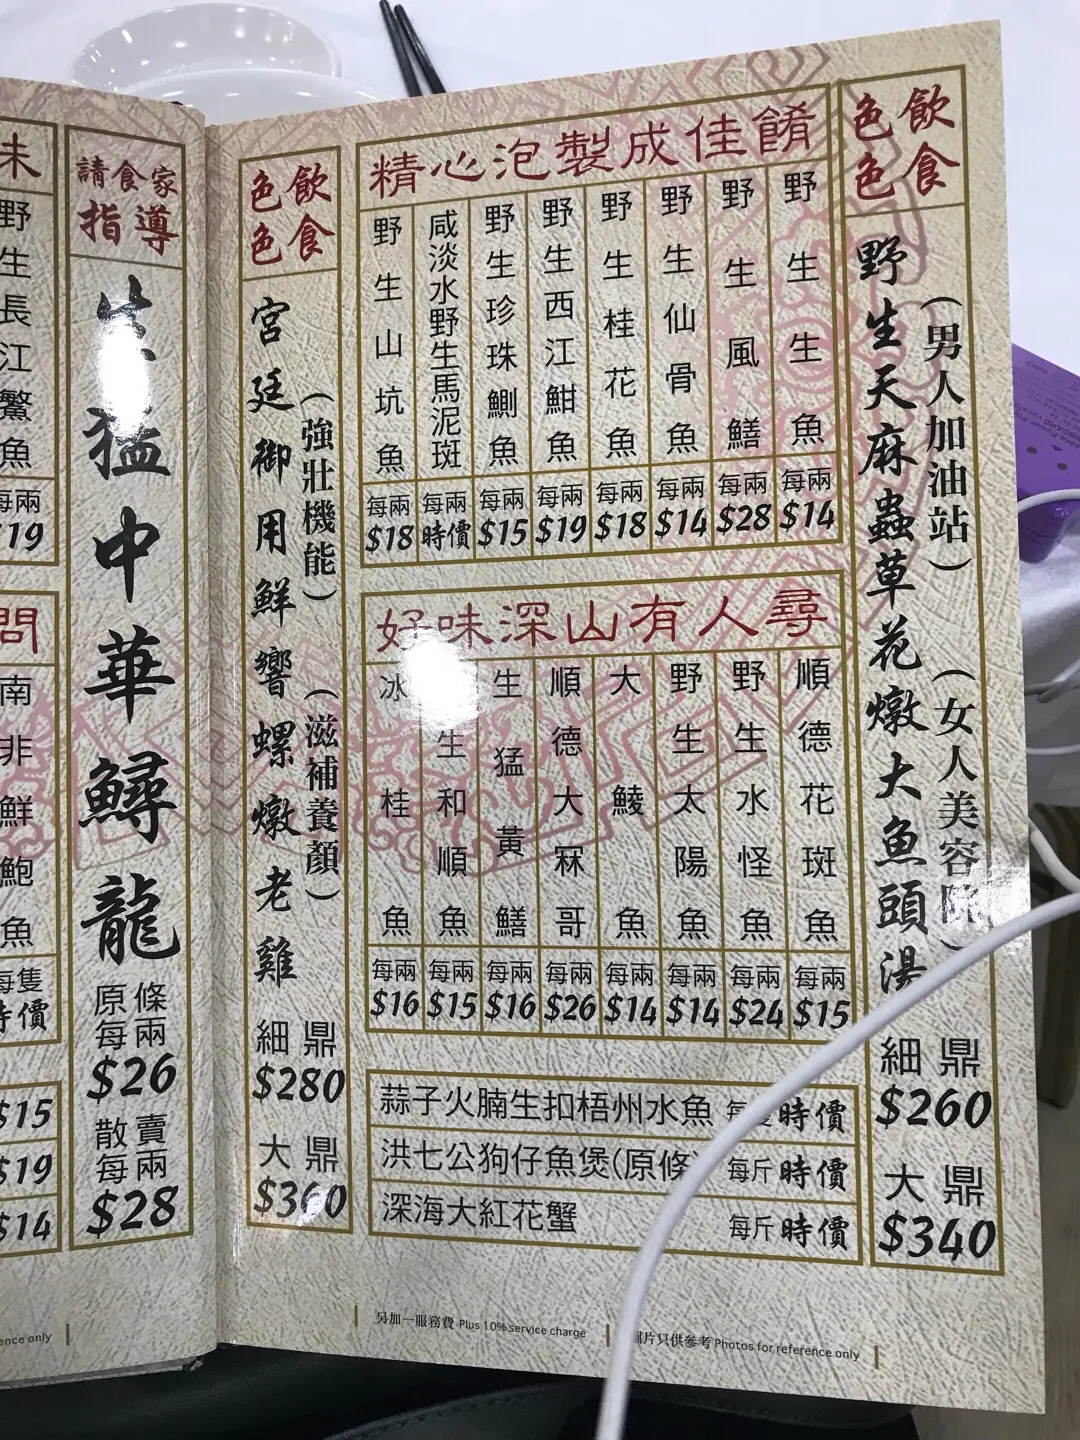 飲食
色色
野生天麻蟲草花燉大魚頭湯
(男人加油站)
(女人美容院)
細鼎
$260
大鼎
$340
精心泡製成佳餚
野生生魚 每兩 $14
野生風鱔 每兩 $28
野生仙骨魚 每兩 $14
野生桂花魚 每兩 $18
野生西江鮒魚 每兩 $19
野生珍珠鰂魚 每兩 $15
咸淡水野生馬泥斑 每兩 時價
野生山坑魚 每兩 $18
好味深山有人尋
順德花斑魚 每兩 $15
野生水怪魚 每兩 $24
野生太陽魚 每兩 $14
大鯪魚 每兩 $14
順德大冧哥 每兩 $26
生猛黃鱔 每兩 $16
生和順魚 每兩 $15
冰桂魚 每兩 $16
蒜子火腩生扣梧州水魚 時價
洪七公狗仔魚煲(原條) 每斤 時價
深海大紅花蟹 每斤 時價
飲食
色色
宮廷御用鮮響螺燉老雞
(強壯機能)
(滋補養顏)
細鼎
$280
大鼎
$360
另加一服務費 Plus 10% service charge
圖片只供參考 Photos for reference only
請食家
指導
生猛中華鱘龍
原條
每兩
$26
散賣
每兩
$28
未
野生長江鱉魚
每兩
$19
問
南非鮮鮑魚
每隻
時價
$15
$19
$14
only